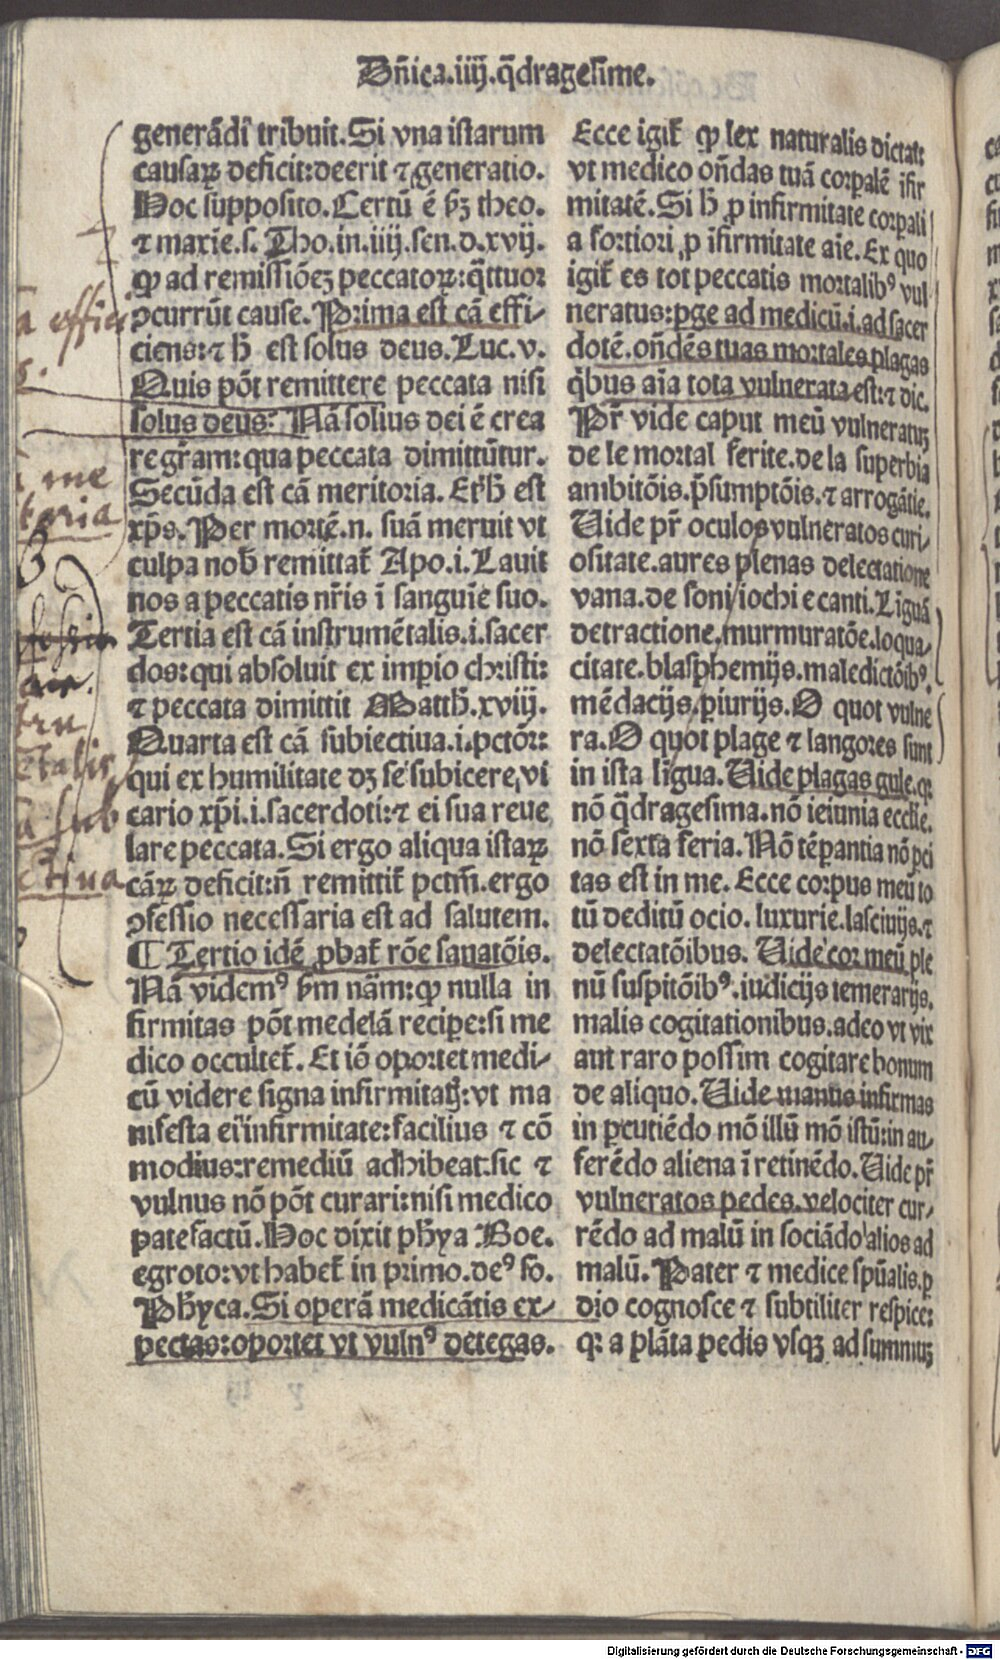 Dn̄ica.iiij.q̄dragesime.
generādi tribuit.Si vna istarum
causaꝝ deficit:deerit ⁊ generatio.
Hoc supposito.Certū ē ẜꝫ theo.
⁊ maxīe.s. Tho.in.iiij.sen.d.xvij.
ꝙ ad remissiōeꝫ peccatoꝝ:q̄ttuor
ꝯcurrūt cause. Prima est cā effi-
ciens:⁊ h̄ est solus deus. Luc.v.
Quis pōt remittere peccata nisi
solus deus: Nā solius dei ē crea
re gr̄am:qua peccata dimittūtur.
Secūda est cā meritoria. Et h̄ est
xp̄s. Per mortē.n. suā meruit vt
culpa nob̄ remittat̄ Apo.i.Lauit
nos a peccatis nr̄is ī sanguīe suo.
Tertia est cā instrumētalis.i.sacer
dos:qui absoluit ex imp̄io christi:
⁊ peccata dimittit Matth̄.xviij.
Quarta est cā subiectiua.i.pctōr:
qui ex humilitate dꝫ se subicere,vi
cario xp̄i.i.sacerdoti:⁊ ei sua reue
lare peccata.Si ergo aliqua istaꝝ
cāꝝ deficit:n̄ remittit̄ pctm̄.ergo
ꝯfessio necessaria est ad salutem.
¶ Tertio idē ꝓbat̄ rōe sanatōis.
Nā videmꝰ ẜm nām:ꝙ nulla in
firmitas pōt medelā recipe:si me
dico occultet̄. Et iō oportet medi-
cū videre signa infirmitatꝭ:vt ma
nifesta ei infirmitate:facilius ⁊ cō
modius:remediū adhibeat:sic ⁊
vulnus nō pōt curari:nisi medico
patefactū.Hoc dixit ph̄ya Boe.
egroto:vt habet̄ in primo.deꝰ so.
Ph̄yca.Si operā medicātis ex-
pectas:oportet vt vulnꝰ detegas.
Ecce igit̄ ꝙ lex naturalis dictat:
vt medico ōndas tuā corpalē īfir
mitatē.Si h̄ ꝓ infirmitate corpali
a fortiori ꝓ īfirmitate aīe. Ex quo
igit̄ es tot peccatis mortalibꝰ vul
neratus:ꝑge ad medicū.i.ad sacer
dotē.ōndēs tuas mortales plagas
q̄bus aīa tota vulnerata est:⁊ dic.
Pr̄ vide caput meū vulneratuꝫ
de le mortal ferite.de la superbia
ambitōis.p̄sumptōis.⁊ arrogātie.
Uide pr̄ oculos vulneratos curi-
ositate.aures plenas delectatione
vana.de soni iochi e canti.Liguā
detractione.murmuratōe.loqua-
citate.blasphemijs.maledictōibꝰ.
mēdacijs.ꝑiurijs.O quot vulne
ra.O quot plage ⁊ langores sunt
in ista līgua.Uide plagas gule.qꝛ
nō q̄dragesima.nō ieiunia ecclīe.
nō sexta feria.Nō tēꝑantia nō ꝑci
tas est in me. Ecce corpus meū to
tū deditū ocio. luxurie.lasciuijs.⁊
delectatōibus. Uide cor meū ple
nū suspitōibꝰ.iudicijs temerarijs.
malis cogitationibus.adeo vt vix
aut raro possim cogitare bonum
de aliquo.Uide manus infirmas
in ꝑcutiēdo mō illū mō istū:in au-
ferēdo aliena ī retinēdo.Uide pr̄
vulneratos pedes.velociter cur-
rēdo ad malū in sociādo alios ad
malū. Pater ⁊ medice sp̄ualis.ꝑ
dio cognosce ⁊ subtiliter respice:
qꝛ a plāta pedis vsqꝫ ad summuꝫ
a effici
s.
me
toria
tru
ētalis
a sub
ctiua
Digitalisierung gefördert durch die Deutsche Forschungsgemeinschaft - DFG